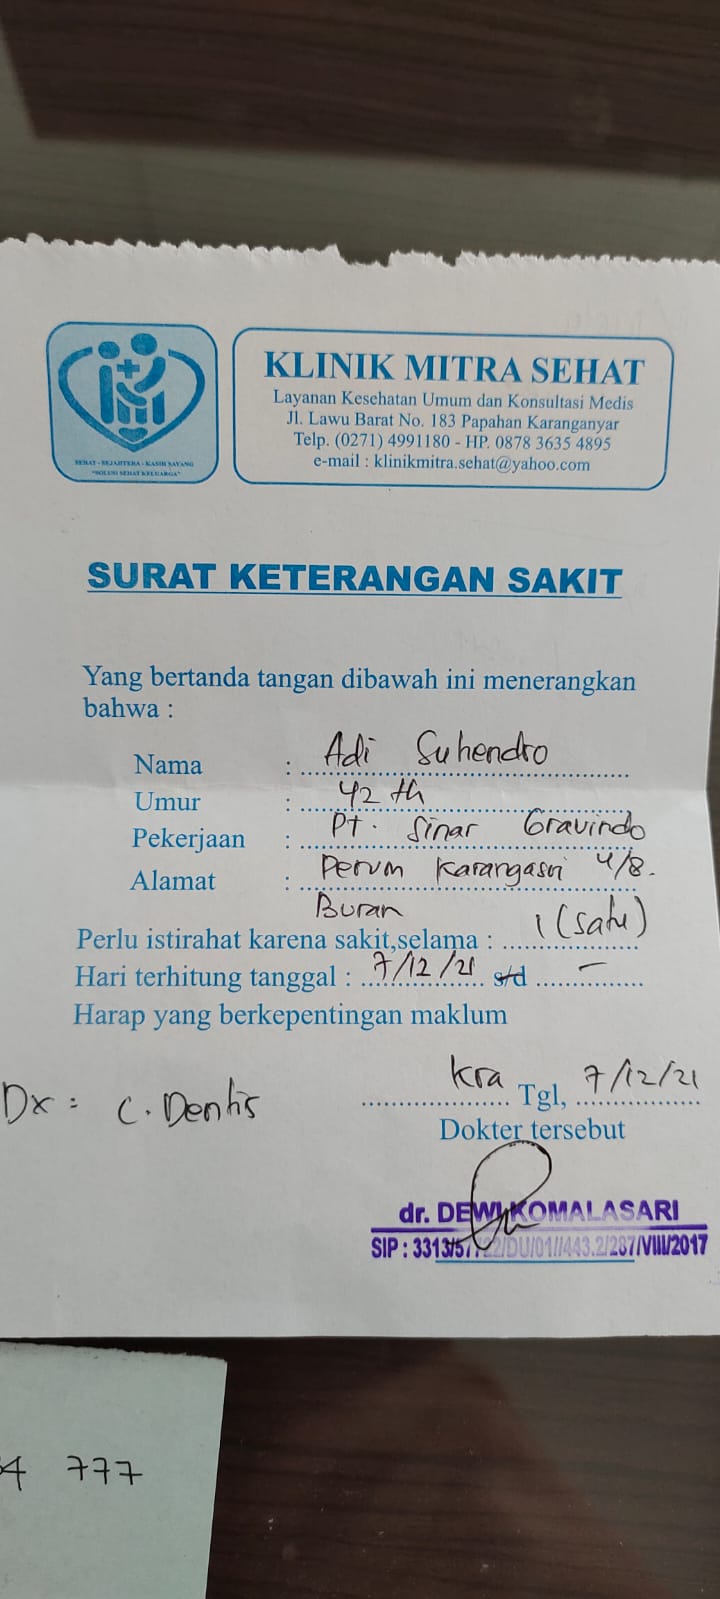 SEHAT - SEJAHTERA - KASIH SAYANG
"SOLUSI SEHAT KELUARGA"
KLINIK MITRA SEHAT
Layanan Kesehatan Umum dan Konsultasi Medis
Jl. Lawu Barat No. 183 Papahan Karanganyar
Telp. (0271) 4991180 - HP. 0878 3635 4895
e-mail : klinikmitra.sehat@yahoo.com
SURAT KETERANGAN SAKIT
Yang bertanda tangan dibawah ini menerangkan
bahwa :
Nama : Adi Suhendro
Umur : 42 th
Pekerjaan : Pt. Sinar Gravindo
Alamat : Perum Karangasri 4/8.
Buran
Perlu istirahat karena sakit,selama : 1 (satu)
Hari terhitung tanggal : 7/12/21 s/d -
Harap yang berkepentingan maklum
Kra Tgl, 7/12/21
Dx : C. Dentis
Dokter tersebut
dr. DEWI KOMALASARI
SIP : 3313/57 /DU/01/443.2/287/VIII/2017
4 777